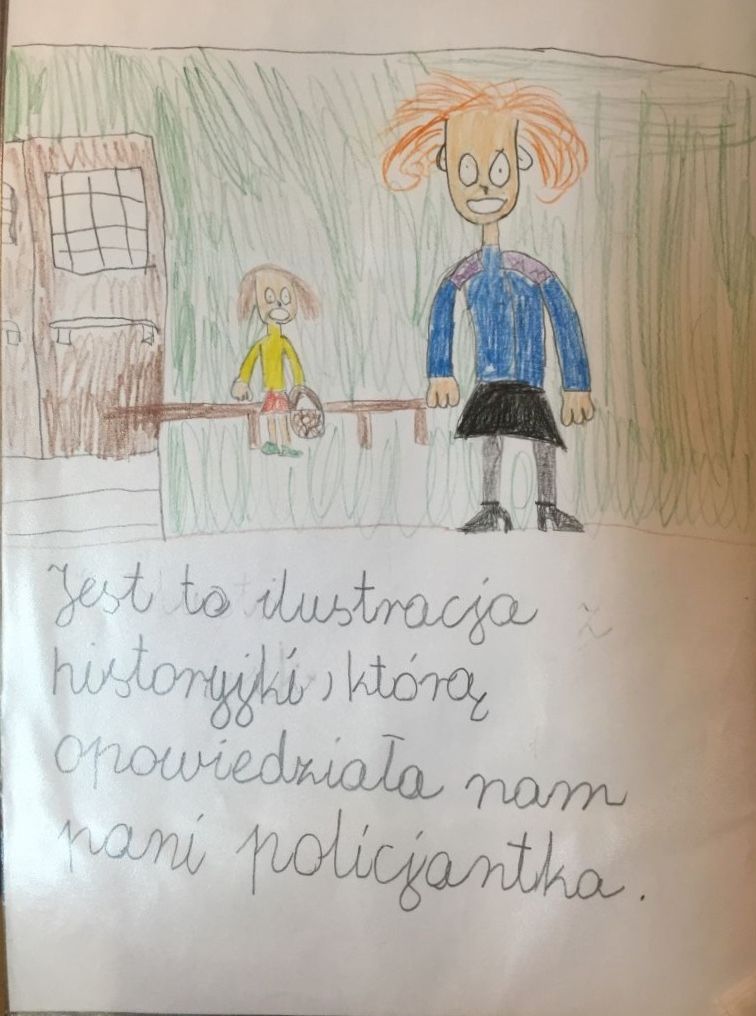 Jest to ilustracja
historyjki, którą
opowiedziała nam
pani policjantka.